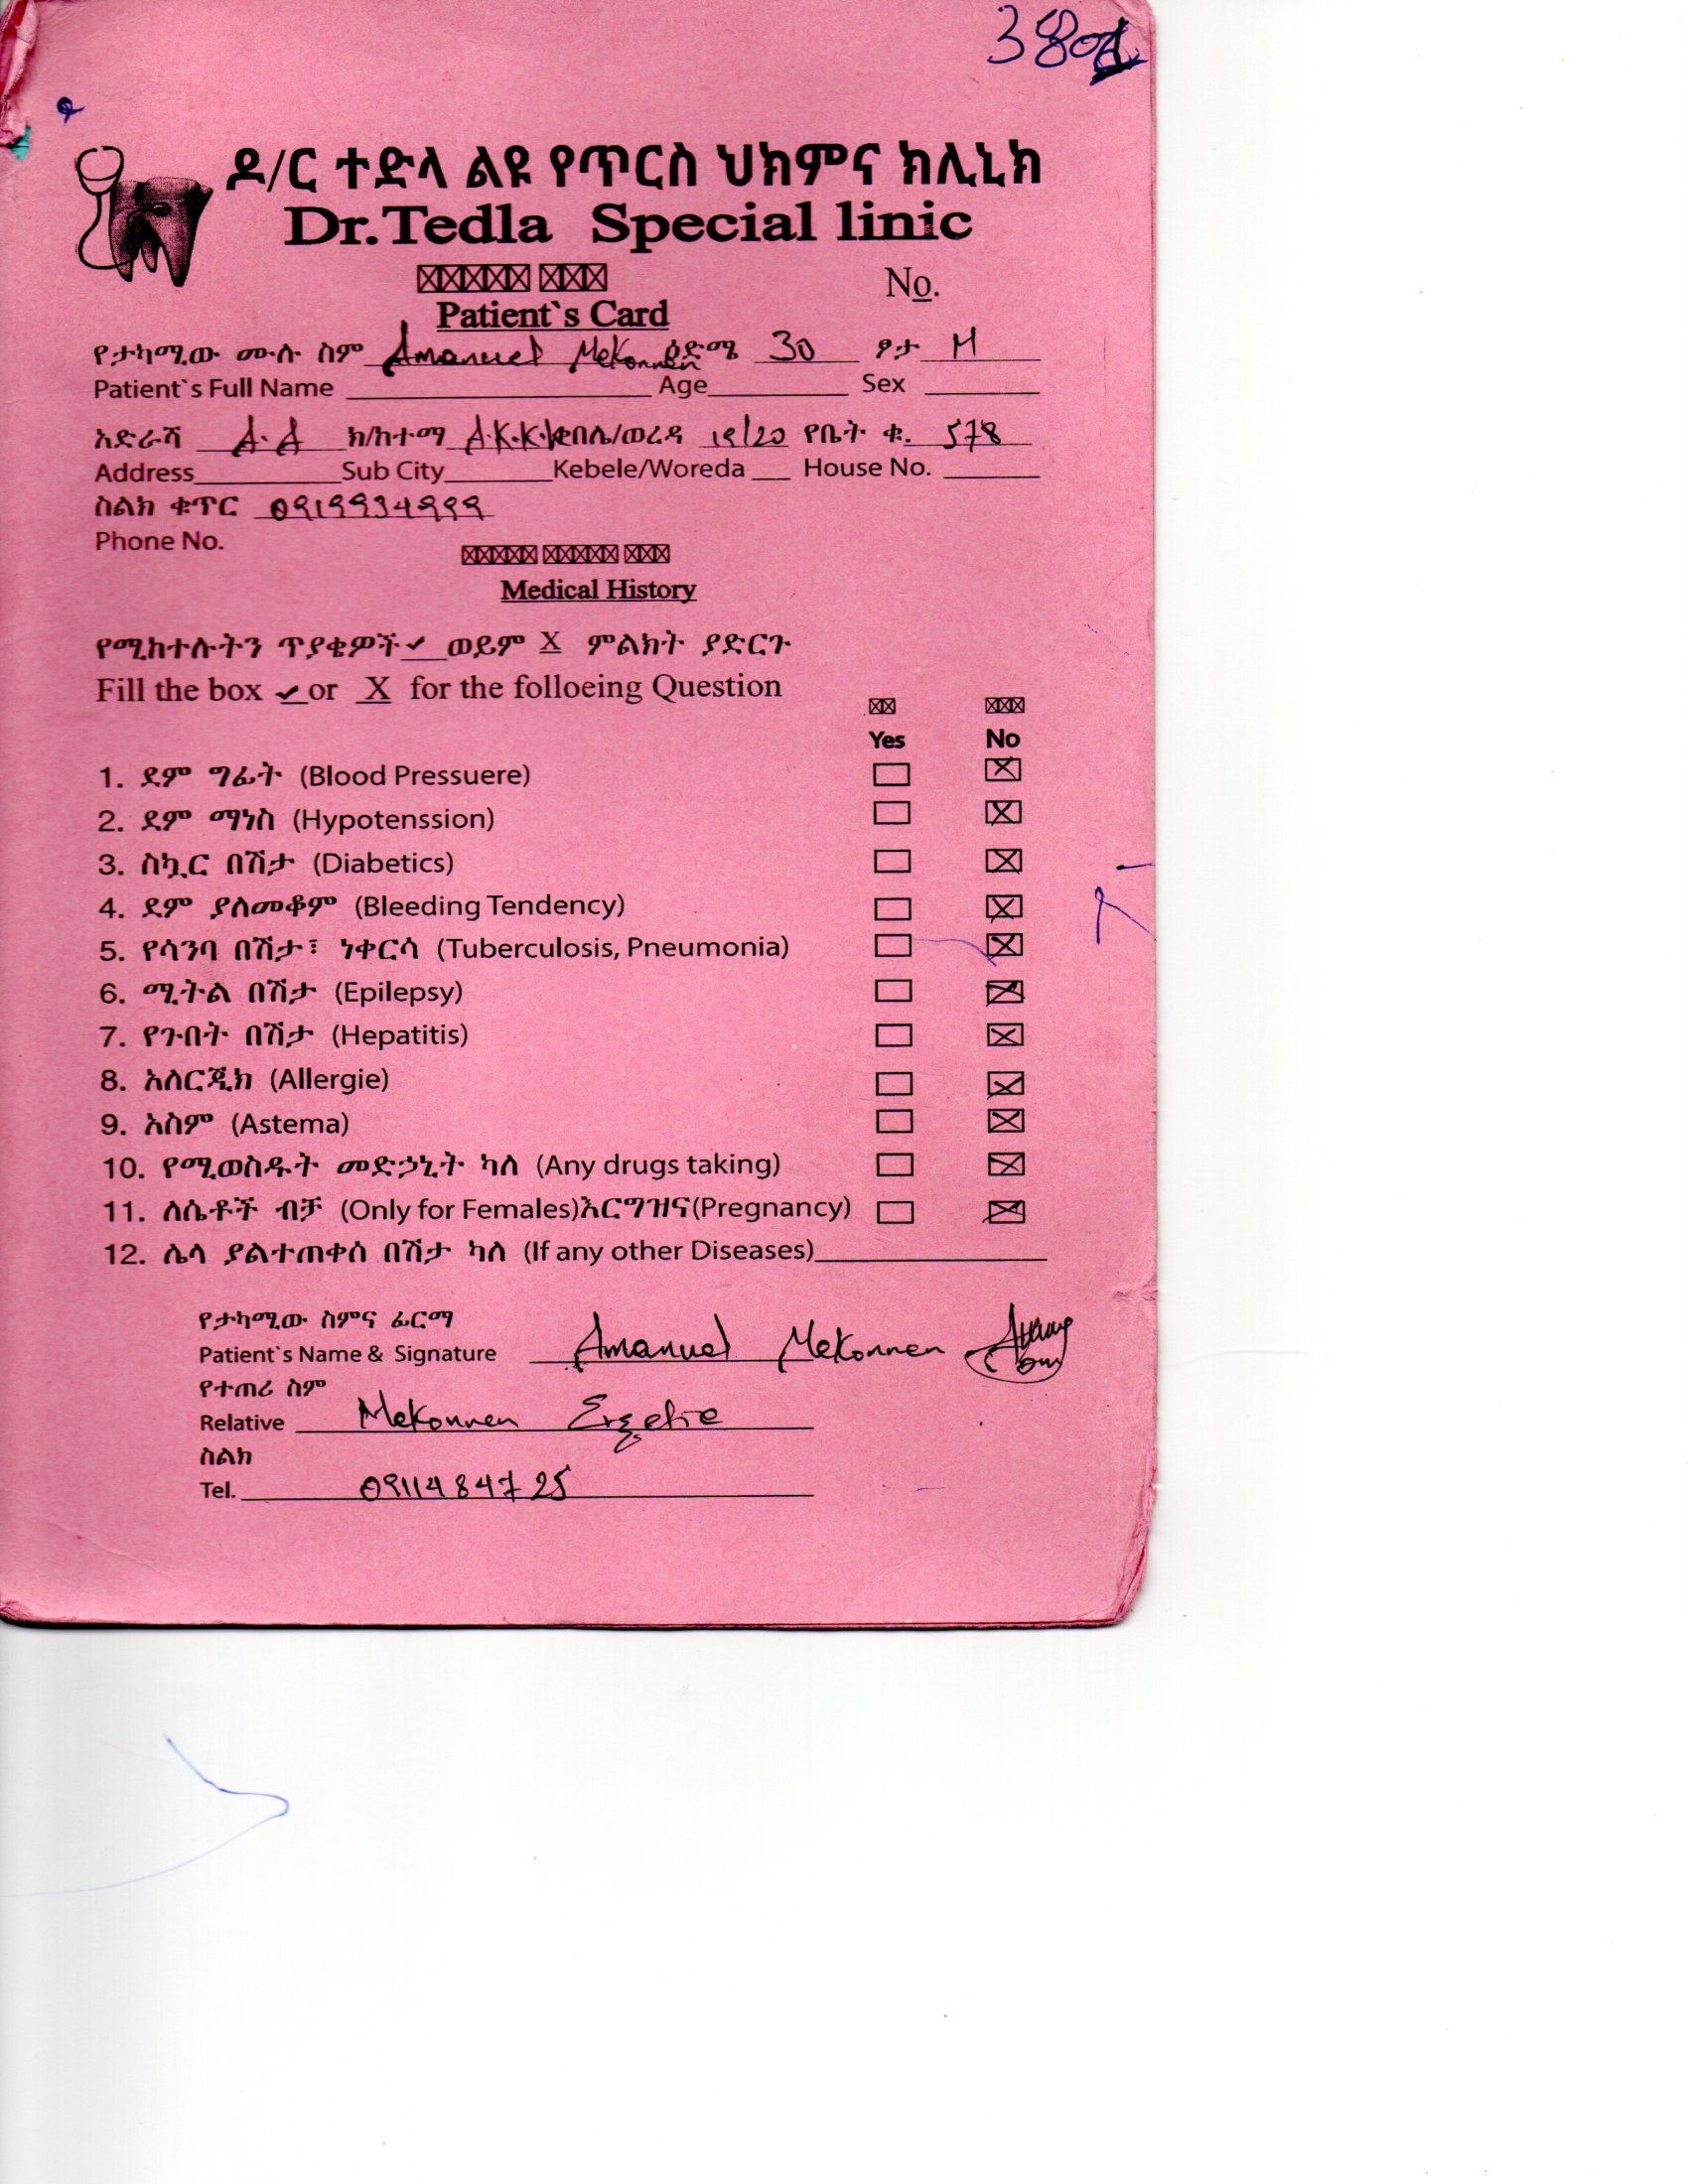 ዶ/ር ተድላ ልዩ የጥርስ ህክምና ክሊኒክ
Dr.Tedla Special linic
No.
Patient`s Card
የታካሚው ሙሉ ስም Amanuel Mekonnen ዕድሜ 30 ፆታ M
Patient`s Full Name Age Sex
አድራሻ A.A ክ/ከተማ A.K.K ቀበሌ/ወረዳ 19/20 የቤት ቁ. 578
Address Sub City Kebele/Woreda House No.
ስልክ ቁጥር
Phone No.
Medical History
የሚከተሉትን ጥያቄዎች ✓ ወይም X ምልክት ያድርጉ
Fill the box ✓ or X for the folloeing Question
Yes No
1. ደም ግፊት (Blood Pressuere)
2. ደም ማነስ (Hypotenssion)
3. ስኳር በሽታ (Diabetics)
4. ደም ያለመቆም (Bleeding Tendency)
5. የሳንባ በሽታ፣ ነቀርሳ (Tuberculosis, Pneumonia)
6. ሚትል በሽታ (Epilepsy)
7. የጉበት በሽታ (Hepatitis)
8. አለርጂክ (Allergie)
9. አስም (Astema)
10. የሚወስዱት መድኃኒት ካለ (Any drugs taking)
11. ለሴቶች ብቻ (Only for Females)እርግዝና(Pregnancy)
12. ሌላ ያልተጠቀሰ በሽታ ካለ (If any other Diseases)
የታካሚው ስምና ፊርማ
Patient`s Name & Signature Amanuel Mekonnen
የተጠሪ ስም
Relative Mekonnen
ስልክ
Tel. 0911484725